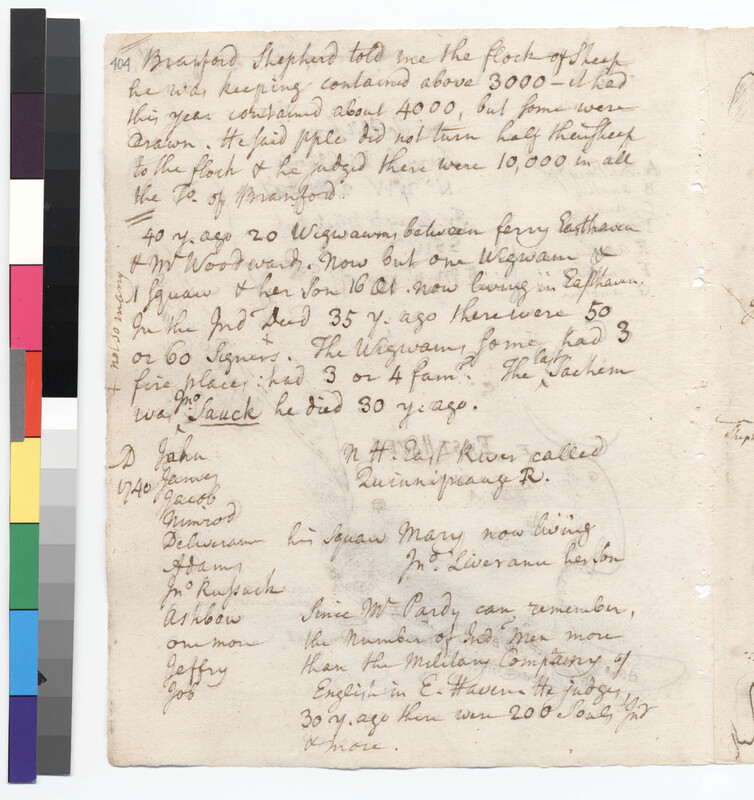 404 Branford Shepherd told me the flock of Sheep
he was keeping contained above 3000 – it had
this year contained about 4000, but some were
Drawn. He said pple did not turn half their Sheep
to the flock & he judged there were 10,000 in all
the To. of Branford.
40 y. ago 20 Wigwawms between ferry Easthaven
& Mr Woodwards. Now but one Wigwam &
1 Squaw & her Son 16 Æt. now living in Easthaven.
In the Indn Deed 35 y. ago there were 50
or 60 Signers. The Wigwams some had 3
+ not so many
fire places: had 3 or 4 famys. The last Sachem
was Jno Sauck he died 30 y. ago.
AD John N H. East River called
1740 James Quinnipeauge R.
Jacob
Nimrod
Deliverance his Squaw Mary now living
Adams Jno. Liverance her Son
Jno Rupsuck
Ashbow Since Mr Pardy can remember,
one more the Number of Indn Men more
Jeffry than the Military Company of
Job English in E. Haven. He judges
30 y. ago there were 200 Souls Indn
& more.